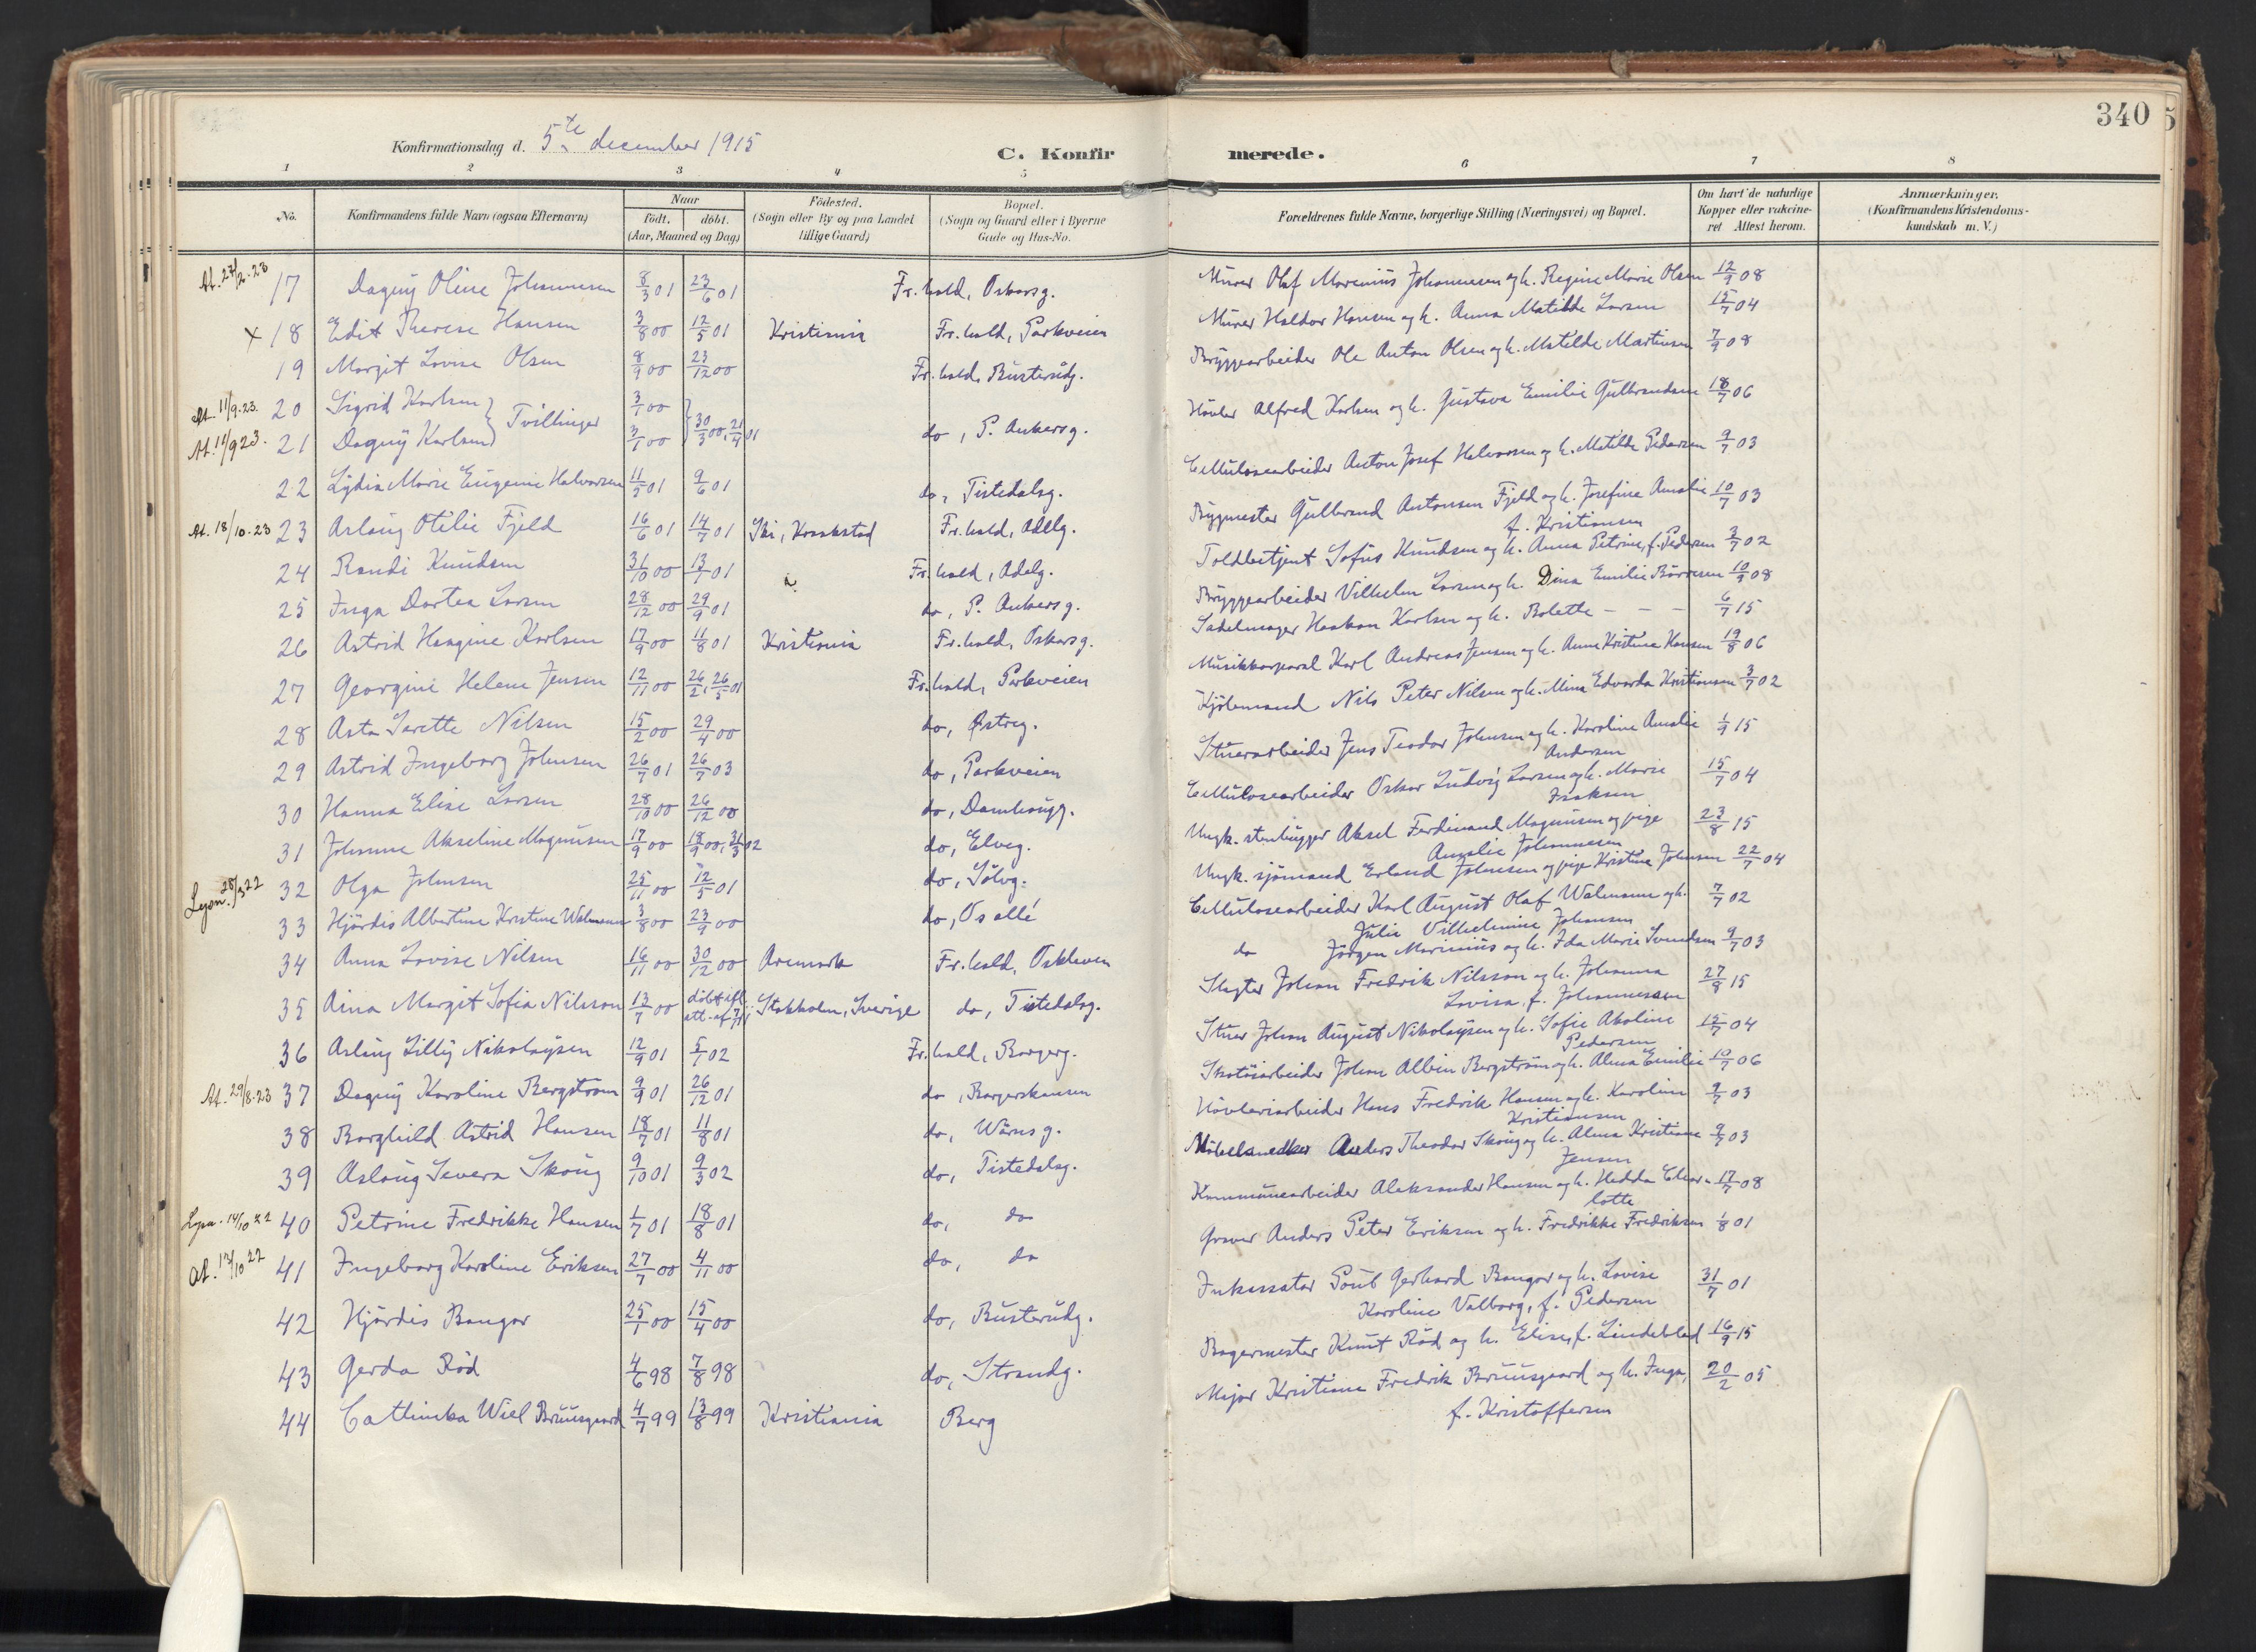 340
Konfirmationsdag d. 5te december 1915
C. Konfirmerede.
1 2 3 4 5 6 7 8
No. Konfirmandens fulde Navn (ogsaa Efternavn) Naar födt. döbt. (Aar, Maaned og Dag) Födested. (Sogn eller By og paa Landet tillige Gaard) Bopæl. (Sogn og Gaard eller i Byerne Gade og Hus-No. Forældrenes fulde Navne, borgerlige Stilling (Næringsvei) og Bopæl. Om havt de naturlige Kopper eller vakcineret Attest herom. Anmærkninger. (Konfirmandens Kristendomskundskab m. V.)
At. 27/2.23 17 Dagny Oline Johannesen 8/3 01 23/6 01 Fr.hald, Oskarsg. Murer Olaf Marenius Johannesen og h. Regine Marie Olsen 12/9 08
x 18 Edit Therese Hansen 3/8 00 12/5 01 Kristiania Fr.hald, Parkveien Murer Haldor Hansen og h. Anna Matilde Larsen 15/7 04
19 Margit Lovise Olsen 8/9 00 23/12 00 Fr.hald, Busterudg. Bryggearbeider Ole Anton Olsen og h. Matilde Martinsen 7/9 08
At. 11/9.23. 20 Sigrid Karlsen } Tvillinger 3/1 00 } Høvler Alfred Karlsen og h. Gustava Emilie Gulbrandsen 18/7 06
At. 11/9 23. 21 Dagny Karlsen 3/1 00 30/3 00, 21/4 01 do, P. Ankersg.
22 Lydia Marie Eugenie Halvorsen 11/5 01 9/6 01 do, Tistedalsg. Cellulosearbeider Anton Josef Halvorsen og h. Matilde Pedersen 9/7 03
At. 18/10.23 23 Aslaug Otilie Fjeld 16/6 01 14/7 01 Ski, Kraakstad Fr.hald, Adelg. Bygmester Gulbrand Antonsen Fjeld og h. Josefine Amalie f. Kristiansen 10/7 03
24 Randi Knudsen 31/10 00 13/1 01 Fr.hald, Adelg. Toldbetjent Sofus Knudsen og h. Anna Petrine, f. Pedersen 3/7 02
25 Inga Dortea Larsen 28/12 00 29/9 01 do, P. Ankersg. Bryggearbeider Vilhelm Larsen og h. Dina Emilie Börresen 10/9 08
26 Astrid Haagine Karlsen 17/9 00 11/8 01 Kristiania Fr.hald, Oskarsg. Sadelmager Haakon Karlsen og h. Bolette - - - 6/7 15
27 Georgine Helene Jensen 12/11 00 26/2, 26/5 01 Fr.hald, Parkveien Musikkorporal Karl Andreas Jensen og h. Anne Kristine Hansen 19/8 06
28 Asta Sarette Nilsen 15/2 00 29/4 00 do, Østreg. Kjöbmand Nils Peter Nilsen og h. Mina Edvarda Kristiansen 3/7 02
29 Astrid Ingeborg Johnsen 26/7 01 26/7 03 do, Parkveien Stuerarbeider Jens Teodor Johnsen og h. Karoline Amalie Andersen 1/9 15
30 Hanna Elise Larsen 28/10 00 26/12 00 do, Damhaugg. Cellulosearbeider Oskar Ludvig Larsen og h. Marie Isaksen 15/7 04
31 Johanne Akseline Magnusen 17/9 00 18/9 00, 31/3 02 do, Elveg. Ungk. stenhugger Aksel Ferdinand Magnusen og pige Amalie Johannesen 23/8 15
Lysn. 28/3 22 32 Olga Johnsen 25/11 00 12/5 01 do, Sölvg. Ungk. sjömand Erland Johnsen og pige Kristine Johnsen 22/7 04
33 Hjördis Albertine Kristine Walmann 3/8 00 23/9 00 do, Os allé Cellulosearbeider Karl August Olaf Walmann og h. Julie Vilhelmine Johansen 7/7 02
34 Anna Lovise Nilsen 16/11 00 30/12 00 Aremark Fr.hald, Oskleven do Jörgen Marinius og h. Ida Marie Svendsen 9/7 03
35 Aina Margit Sofia Nilsson 13/7 00 döbt ifl. att. af 7/11 Stokholm, Sverige do, Tistedalsg. Slagter Johan Fredrik Nilsson og h. Johanna Lovisa, f. Johannessen 27/8 15
36 Aslaug Lilly Nikolaysen 12/9 01 5/1 02 Fr.hald, Borgerg. Stuer Johan August Nikolaysen og h. Sofie Akoline Pedersen 15/7 04
At. 29/8.23 37 Dagny Karoline Bergstrøm 9/9 01 26/12 01 do, Borgerskansen Skotöiarbeider Johan Albin Bergstrøm og h. Alma Emilie 10/7 06
38 Borghild Astrid Hansen 18/7 01 11/8 01 do, Wärnsg. Hövleriarbeider Hans Fredrik Hansen og h. Karoline Kristiansen 9/7 03
39 Aslaug Severa Skoug 9/10 01 9/3 02 do, Tistedalsg. Möbelsnedker Anders Theodor Skoug og h. Alma Kristiane Jensen 9/7 03
Lysn. 14/10 22 40 Petrine Fredrikke Hansen 1/7 01 18/8 01 do, do Kommunearbeider Aleksander Hansen og h. Hedda Charlotte 17/7 08
At. 13/10 22 41 Ingeborg Karoline Eriksen 27/7 00 4/11 00 do, do Graver Anders Peter Eriksen og h. Fredrikke Fredriksen 1/8 01
42 Hjördis Bangor 25/1 00 15/4 00 do, Busterudg. Inkassator Poul Gerhard Bangor og h. Lovise Karoline Valborg, f. Pedersen 31/7 01
43 Gerda Röd 4/6 98 7/8 98 do, Strandg. Bagermester Knut Röd og h. Elise, f. Lindeblad 16/9 15
44 Cathinka Wiel Bruusgaard 4/7 99 13/8 99 Kristiania Berg Major Kristian Fredrik Bruusgaard og h. Inga, f. Kristoffersen 20/2 05